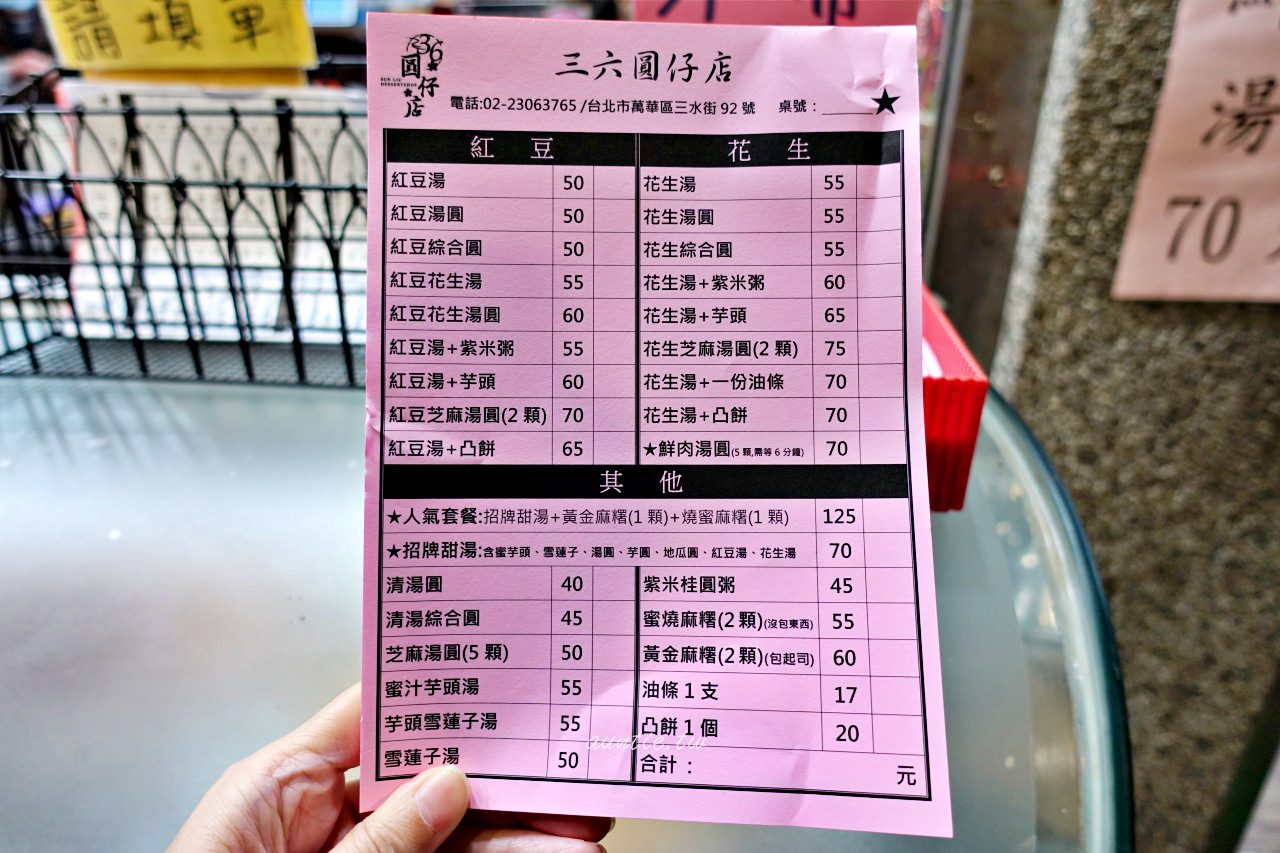 填單
36
圓仔店
SUN LIU
DESSERTSHOP
三六圓仔店
電話:02-23063765 /台北市萬華區三水街 92 號 桌號：______★
紅 豆
紅豆湯 50
紅豆湯圓 50
紅豆綜合圓 50
紅豆花生湯 55
紅豆花生湯圓 60
紅豆湯+紫米粥 55
紅豆湯+芋頭 60
紅豆芝麻湯圓(2 顆) 70
紅豆湯+凸餅 65
花 生
花生湯 55
花生湯圓 55
花生綜合圓 55
花生湯+紫米粥 60
花生湯+芋頭 65
花生芝麻湯圓(2 顆) 75
花生湯+一份油條 70
花生湯+凸餅 70
★鮮肉湯圓(5 顆,需等 6 分鐘) 70
其 他
★人氣套餐:招牌甜湯+黃金麻糬(1 顆)+燒蜜麻糬(1 顆) 125
★招牌甜湯:含蜜芋頭、雪蓮子、湯圓、芋圓、地瓜圓、紅豆湯、花生湯 70
清湯圓 40
清湯綜合圓 45
芝麻湯圓(5 顆) 50
蜜汁芋頭湯 55
芋頭雪蓮子湯 55
雪蓮子湯 50
紫米桂圓粥 45
蜜燒麻糬(2 顆)(沒包東西) 55
黃金麻糬(2 顆)(包起司) 60
油條 1 支 17
凸餅 1 個 20
合計： 元
auntie.tw
湯
70